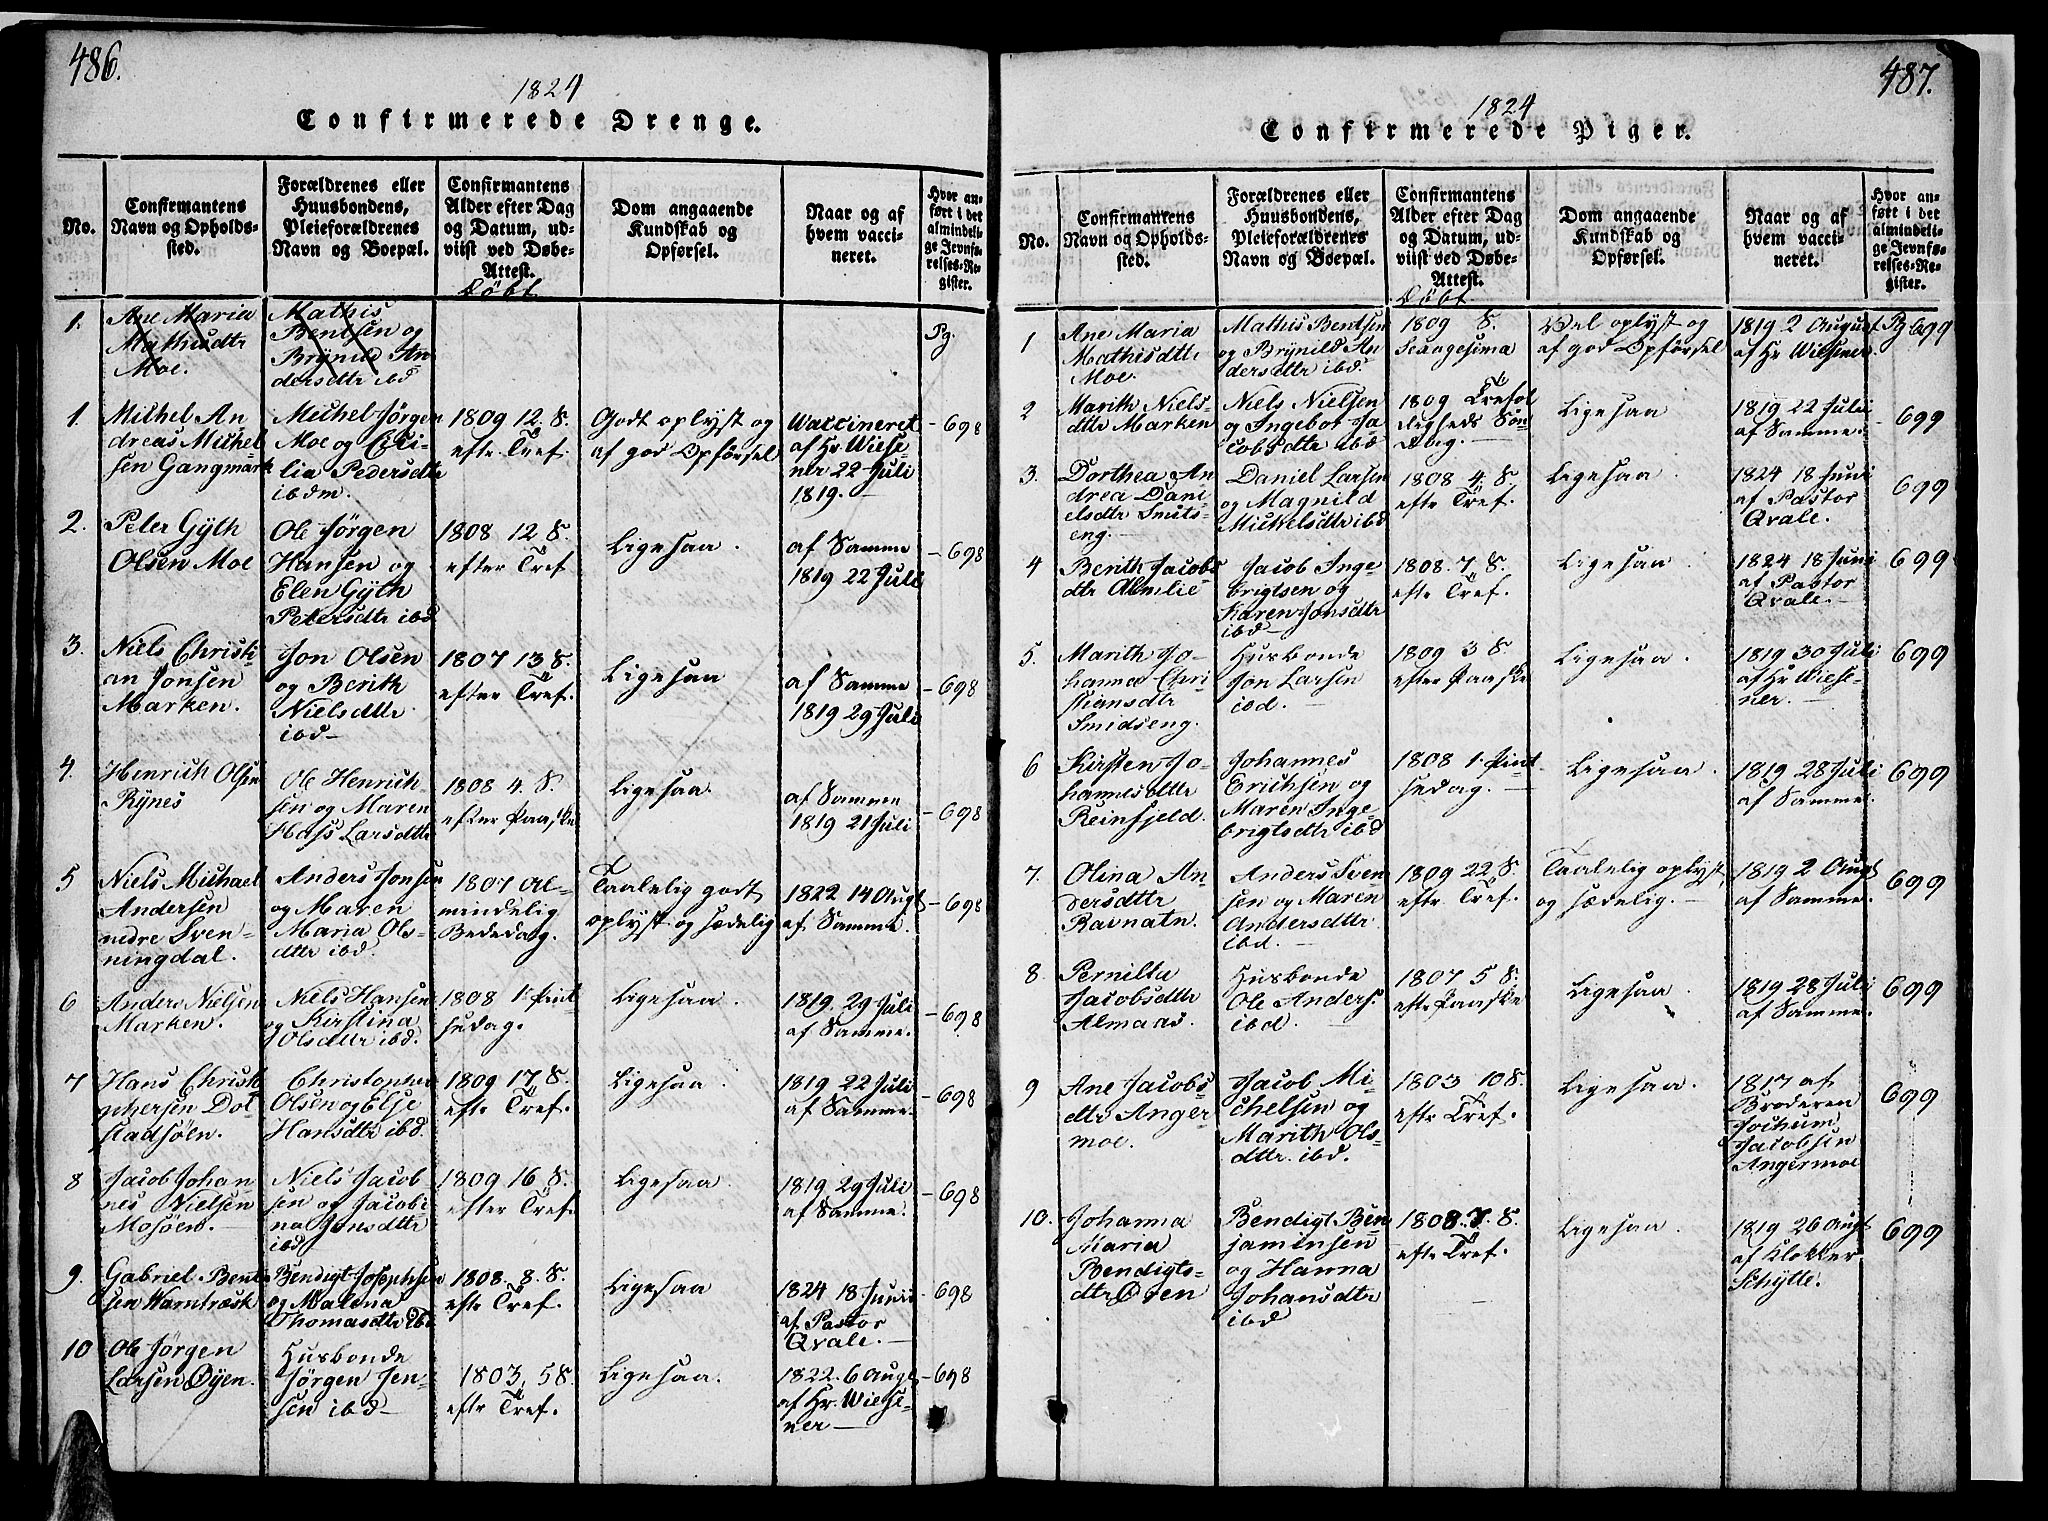 486.
1824
Confirmerede Drenge.
No.
Confirmantens
Navn og Opholds-
sted.
Forældrenes eller
Huusbondens,
Pleieforældrenes
Navn og Boepæl.
Confirmantens
Alder efter Dag
og Datum, ud-
viist ved Døbe-
Attest.
Døbt
Dom angaaende
Kundskab og
Opførsel.
Naar og af
hvem vacci-
neret.
Hvor an-
ført i det
almindeli-
ge Jevnfø-
relses-Re-
gister.
1.
Ane Maria
Mathisdtr
Moe.
Mathis
Bentsen og
Brÿnild An-
dersdtr ibd
Pg.
1.
Michel An
dreas Michel
sen Gangmark
Michel Jørgen
Moe og Cici-
lia Pedersdtr
ibdm.
1809 12. S.
eftr Tref.
Godt oplyst og
af god Opførsel
Waccineret
af Hr. Wiese-
ner 22 Juli
1819.
698
2.
Peter Gÿth
Olsen Moe
Ole Jørgen
Hansen og
Elen Gÿth
Petersdtr ibd
1808 12 S.
efter Tref
Ligesaa.
af Samme
1819 22 Juli
698
3.
Niels Christi-
an Jonsen
Marken.
Jon Olsen
og Berith
Nielsdtr
ibd
1807 13 S.
efter Tref.
Ligesaa
af Samme
1819 29 Juli
698
4.
Henrich Olsen
Rÿnes
Ole Henrich-
sen og Maren
Hass Larsdtr
1808 4. S.
efter Paaske
Ligesaa
af Samme
1819 21 Juli
698
5
Niels Michael
Andersen
nedre Sven-
ningdal.
Anders Jonsen
og Maren
Maria Ols-
dtr ibd.
1807 Al-
mindelig
Bededag.
Taalelig godt
oplyst og sædelig
1822 14 Augt
af Samme.
698
6
Anders Nielsen
Marken.
Niels Hansen
og Kirstina
Olsdtr ibd.
1808 1. Pint
sedag.
Ligesaa.
1819. 29 Juli
af Samme.
698
7
Hans Christ
ophersen Dol-
stadsöen.
Christopher
Olsen og Else
Hansdtr ibd.
1809 17 S.
eftr Tref.
Ligesaa.
1819 22 Juli
af Samme.
698
8
Jacob Johan
nes Nielsen
Mosöen.
Niels Jacob
sen og Jacobi-
na Jonsdtr
ibd
1809 16 S.
efter Tref.
Ligesaa.
1819 29 Juli
af Samme.
698
9.
Gabriel Bent
sen Warntræsk
Bendigt Josephsen
og Malena
Thomasdtr ibd
1808. 8. S.
eftr Tref.
Ligesaa
1824 18 Junii
af Pastor
Qvale.
698
10
Ole Jørgen
Larsen Øÿen.
Husbonde
Jørgen Jen-
sen ibd
1803. 5 S.
eftr Tref.
Ligesaa.
1822. 6 Augt
af Hr. Wiese-
ner
698
487.
1824
Confirmerede Piger.
No.
Confirmantens
Navn og Opholds-
sted.
Forældrenes eller
Huusbondens,
Pleieforældrenes
Navn og Boepæl.
Confirmantens
Alder efter Dag
og Datum, ud-
viist ved Døbe-
Attest.
Døbt
Dom angaaende
Kundskab og
Opførsel.
Naar og af
hvem vacci-
neret.
Hvor an-
ført i det
almindeli-
ge Jevnfø-
relses-Re-
gister.
1
Ane Maria
Mathisdtr
Moe.
Mathis Bentsen
og Brÿnild An
dersdtr ibd.
1809 S.
Sexagesima
Vel oplyst og
af god Opförsel
1819 2 August
af Hr Wiesener.
Pg 699
2
Marith Niels-
dtr Marken
Niels Nielsen
og Ingebor Ja
cobsdtr ibd
1809 Trefol
digheds Søn
dag.
Ligesaa
1819 22 Julii
af Samme.
699
3.
Dorthea An
drea Dani
elsdtr Smits-
eng.
Daniel Larsen
og Magnild
Mickelsdtr ibd
1808 4. S.
eftr Tref.
Ligesaa
1824 18 Juni
af Pastor
Qvale.
699
4
Berith Jacobs
dtr Almlie
Jacob Inge-
brigtsen og
Karen Jonsdtr
ibd
1808. 7. S.
eftr Tref.
Ligesaa
1824 18 Juni
af Pastor
Qvale.
699
5.
Marith Jo-
hanna Chri-
stiansdtr
Smidseng.
Husbonde
Jon Larsen
ibd.
1809 3 S
efter Paaske
Ligesaa.
1819 30 Juli
af Hr Wiese-
ner.
699
6
Kirsten Jo-
hannesdtr
Reinfjeld.
Johannes
Erichsen og
Maren Inge-
brigtsdtr ibd
1808 1. Pint
sedag.
Ligesaa.
1819 28 Juli
af Samme.
699
7.
Olina An-
dersdtr
Ravnatn.
Anders Sven
sen og Maren
Andersdtr
ibd.
1809 22 S.
eftr Tref.
Taalelig oplyst,
og sædelig.
1819 2 Augt
af Samme.
699
8
Pernilla
Jacobsdtr
Almaas.
Husbonde
Ole Anders.
ibd.
1807 5 S.
eftr Paaske
Ligesaa.
1819 28 Juli
af Samme.
699
9
Ane Jacobs
dtr Anger
moe.
Jacob Mi-
chelsen og
Marith Ols-
dtr. ibd.
1803 10 S.
eftr Tref.
Ligesaa.
1817 af
Broderen
Jochum
Jacobsen
Angermoe
699
10.
Johanna
Maria
Bendigts-
dtr Øien
Bendigt Ben
jaminsen
og Hanna
Johansdtr
ibd
1808. 7. S.
eftr Tref.
Ligesaa
1819 26 Augt
af Klokker
Schÿtte.
699